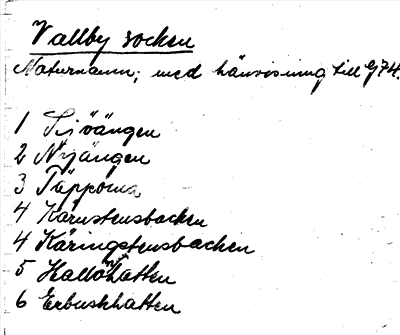 Vallby socken
Naturnamn; med hänvisning till G74.
1 Sjöängen
2 Nyängen
3 Täpporna
4 Kärnstensbacken
4 Käringstensbacken
5 Hallonhatten
6 Enbuskhatten